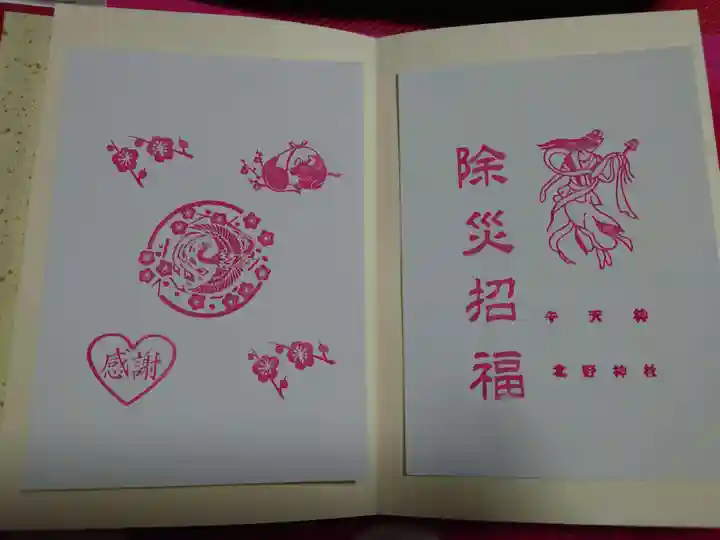 除災招福
牛天神
北野神社
感謝